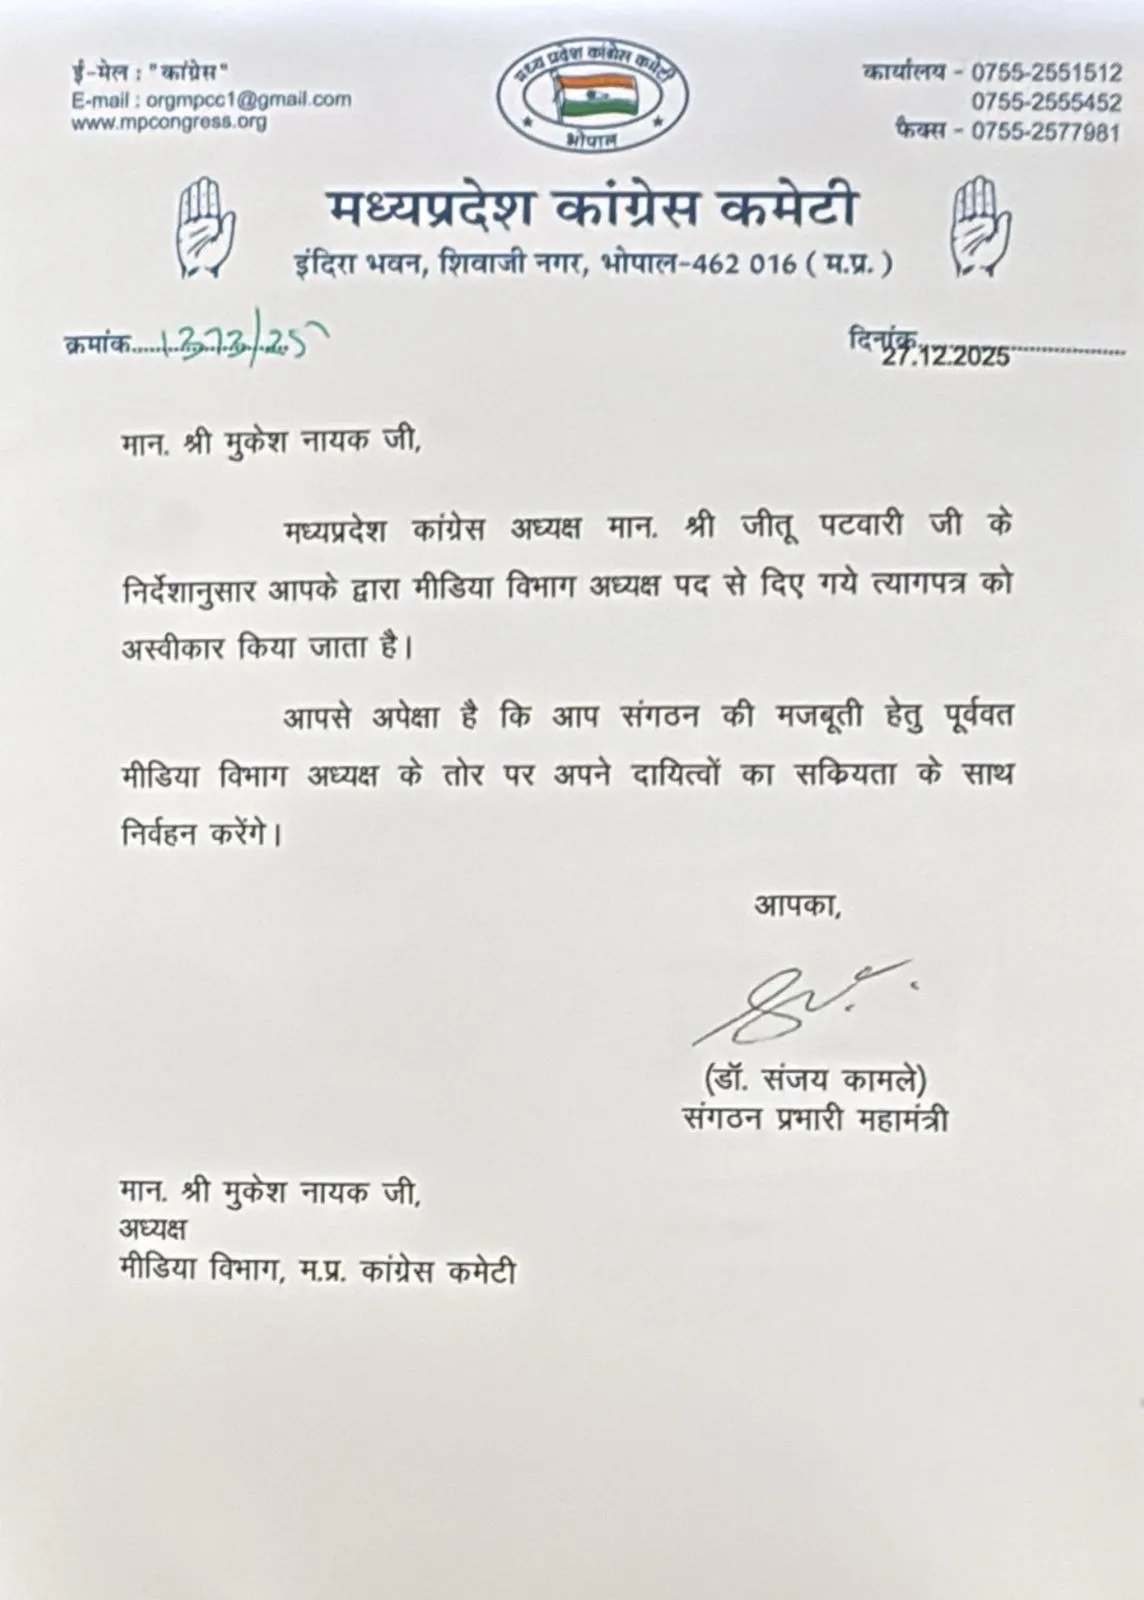 ई-मेल : "कांग्रेस"
E-mail : orgmpcc1@gmail.com
www.mpcongress.org
मध्य प्रदेश कांग्रेस कमेटी
भोपाल
कार्यालय - 0755-2551512
0755-2555452
फैक्स - 0755-2577981
मध्यप्रदेश कांग्रेस कमेटी
इंदिरा भवन, शिवाजी नगर, भोपाल-462 016 ( म.प्र. )
क्रमांक.....1373/25
दिनांक..........
27.12.2025
मान. श्री मुकेश नायक जी,
मध्यप्रदेश कांग्रेस अध्यक्ष मान. श्री जीतू पटवारी जी के
निर्देशानुसार आपके द्वारा मीडिया विभाग अध्यक्ष पद से दिए गये त्यागपत्र को
अस्वीकार किया जाता है।
आपसे अपेक्षा है कि आप संगठन की मजबूती हेतु पूर्ववत
मीडिया विभाग अध्यक्ष के तोर पर अपने दायित्वों का सक्रियता के साथ
निर्वहन करेंगे।
आपका,
(डॉ. संजय कामले)
संगठन प्रभारी महामंत्री
मान. श्री मुकेश नायक जी,
अध्यक्ष
मीडिया विभाग, म.प्र. कांग्रेस कमेटी